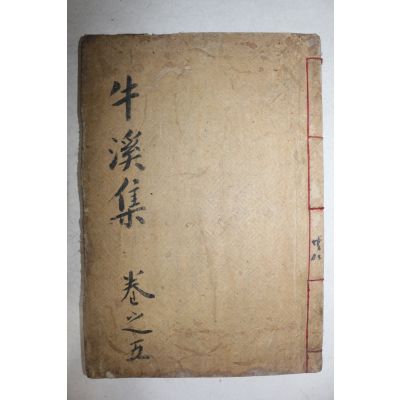 牛溪集
卷之五